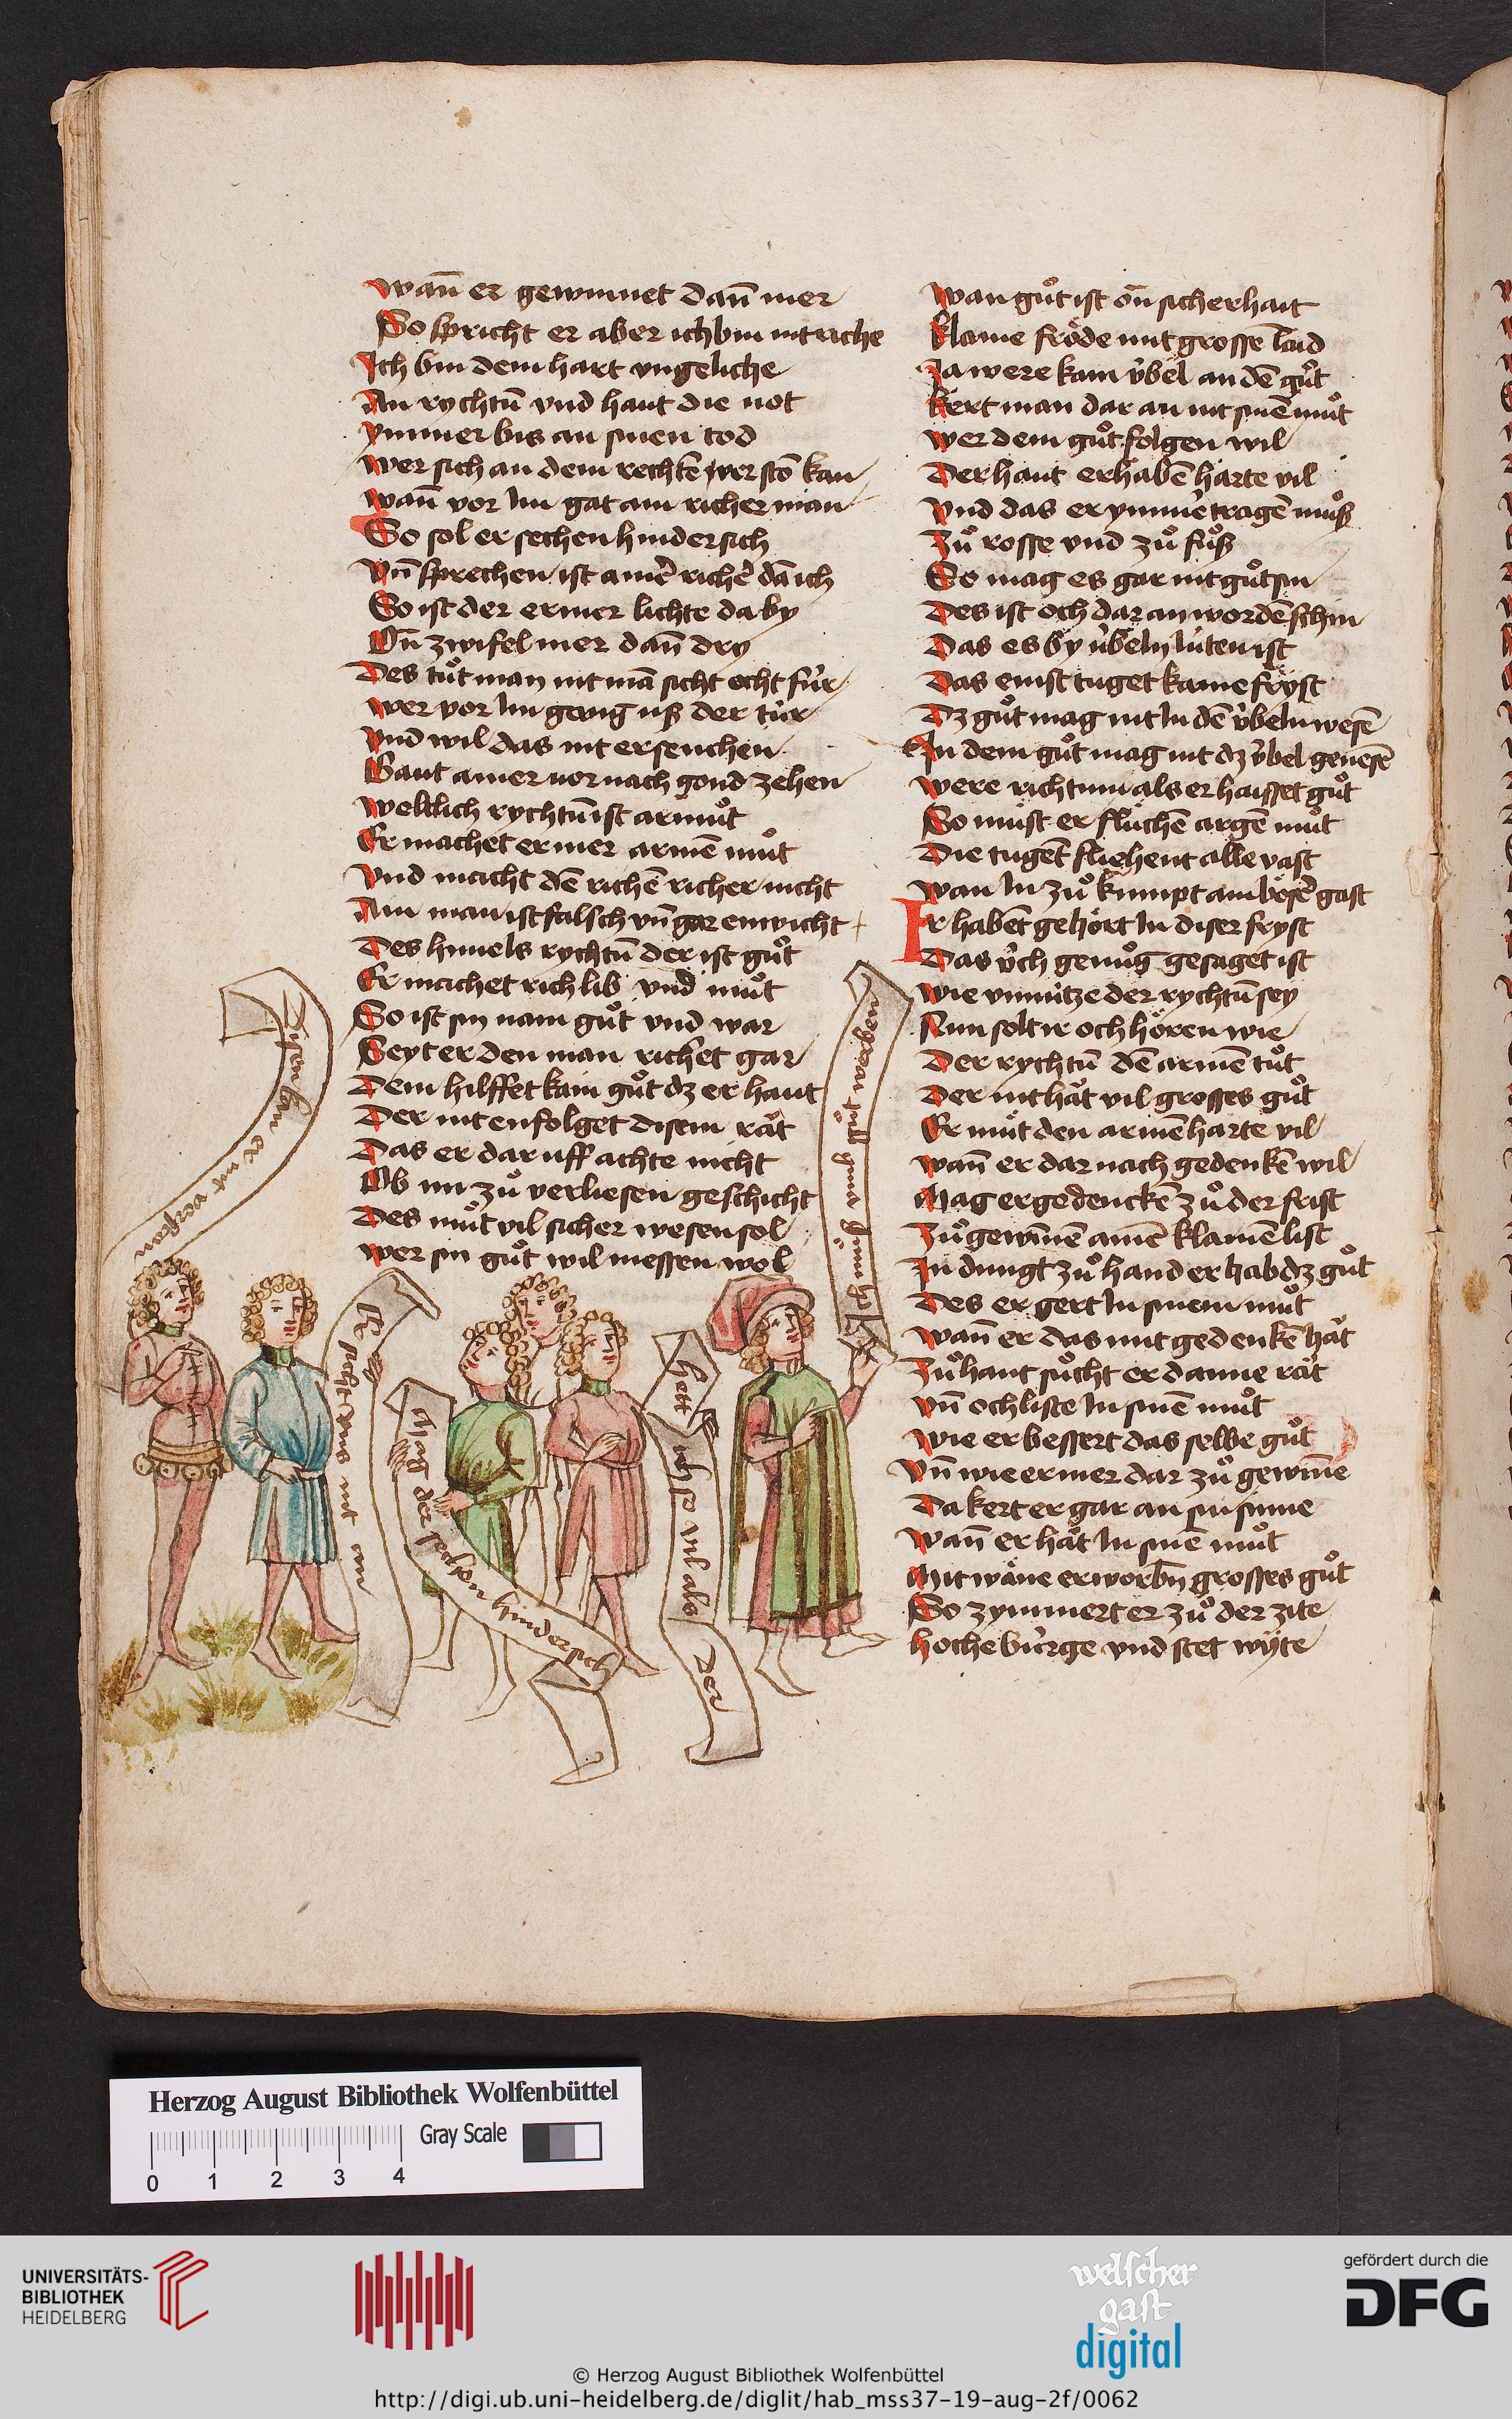 wan̄ er gewinnet dan̄ mer
So spricht er aber ich bin nit riche
Ich bin dem hart vngeliche
An rychtū vnd haut die not
ymmer bis an sinen tod
wer sich an dem rechtē verstō kan
wan̄ vor im gat ain richer man
So sol er sechen hinder sich
Vn̄ sprechen ist ainer richer dā ich
So ist der ermer lichte da by
On̄ zwifel mer dan̄ dry
Des tuͦt man nit mā sicht echt fuͤr
wer vor im geng uß der tuͤr
vnd wil das nit ersenchen
Gant ainer vor nach gond zehen
weltlich rychtū ist armuͦt
Er machet er mer armē muͦt
vnd macht dē richē richer nicht
Ain man ist falsch vn̄ gar enwicht
Des himels rychtū der ist guͦt
Er machet rich lib vnd muͦt
So ist sin nam guͦt vnd war
Seyt er den man richet gar
Dem hilffet kain guͦt dz er haut
Der nit enfolget disem raͤt
Das er dar uff achte nicht
Ob im zuͦ verliesen geschicht
Des muͦt vil sicher wesen sol
wer sin guͦt wil niessen wol
wan guͦt ist on̄ sicherhait
klaine froͤde mit grossē laid
Ja were kain vͤbel an dē guͦt
kert man dar an nit sinē muͦt
wer dem guͦt folgen wil
Der haut erhabē harte vil
vnd das er ymmer tragē muͦß
Zuͦ rosse vnd zuͦ fuͦß
So mag es gar nit guͦt sin
Des ist och dar an wordē schin
Das es by vͤbeln luͤten ist
Das einst tuget kaine fryst
Dz guͦt mag nit in dē vͤbeln wesē
An dem guͦt mag nit dz vͤbel genesē
were richtum als er haisset guͦt
So muͤst er fluͤchē argē muͦt
Die tugēt fliehent alle vast
wan in zuͦ kumpt ain boͤser gast
Ir habēt gehoͤrt in diser fryst
Das vͤch genuͦg gesaget ist
wie vnnuͤtze der rychtū sey
Nun solt ir och hoͤren wie
Der rychtū dē armē tuͦt
Der nit haͤt vil grosses guͦt
Er muͤt den armē harte vil
wan̄ er dar nach gedenkē wil
Mag er gedenckē zuͦ der frist
Zuͦ gewin̄ē ainē klainē list
In dungt zuͦ hand er hab dz guͦt
Des er gert in sinem muͦt
wan̄ er das mit gedenkē haͤt
Zuͦ hant suͦcht er danne raͤt
vn̄ och liste in sinē muͦt
wie er bessert das selbe guͦt
Vn̄ wie er mer dar zuͦ gewin̄e
Da kert er gar an sin sinne
wan̄ er haͤt in sinē muͦt
Mit waͤne erworbn̄ grosses guͦt
So zymmert er zuͦ der zite
hoche buͤrge vnd stet wyte
Disen kan er nit versten
Er sicht vns nit an
ich sag der sehen hinder sich
hett ich so vil als
Der
Herzog August Bibliothek Wolfenbüttel
Gray Scale
0 1 2 3 4
UNIVERSITÄTS-
BIBLIOTHEK
HEIDELBERG
welscher
gast
digital
gefördert durch die
DFG
© Herzog August Bibliothek Wolfenbüttel
http://digi.ub.uni-heidelberg.de/diglit/hab_mss37-19-aug-2f/0062